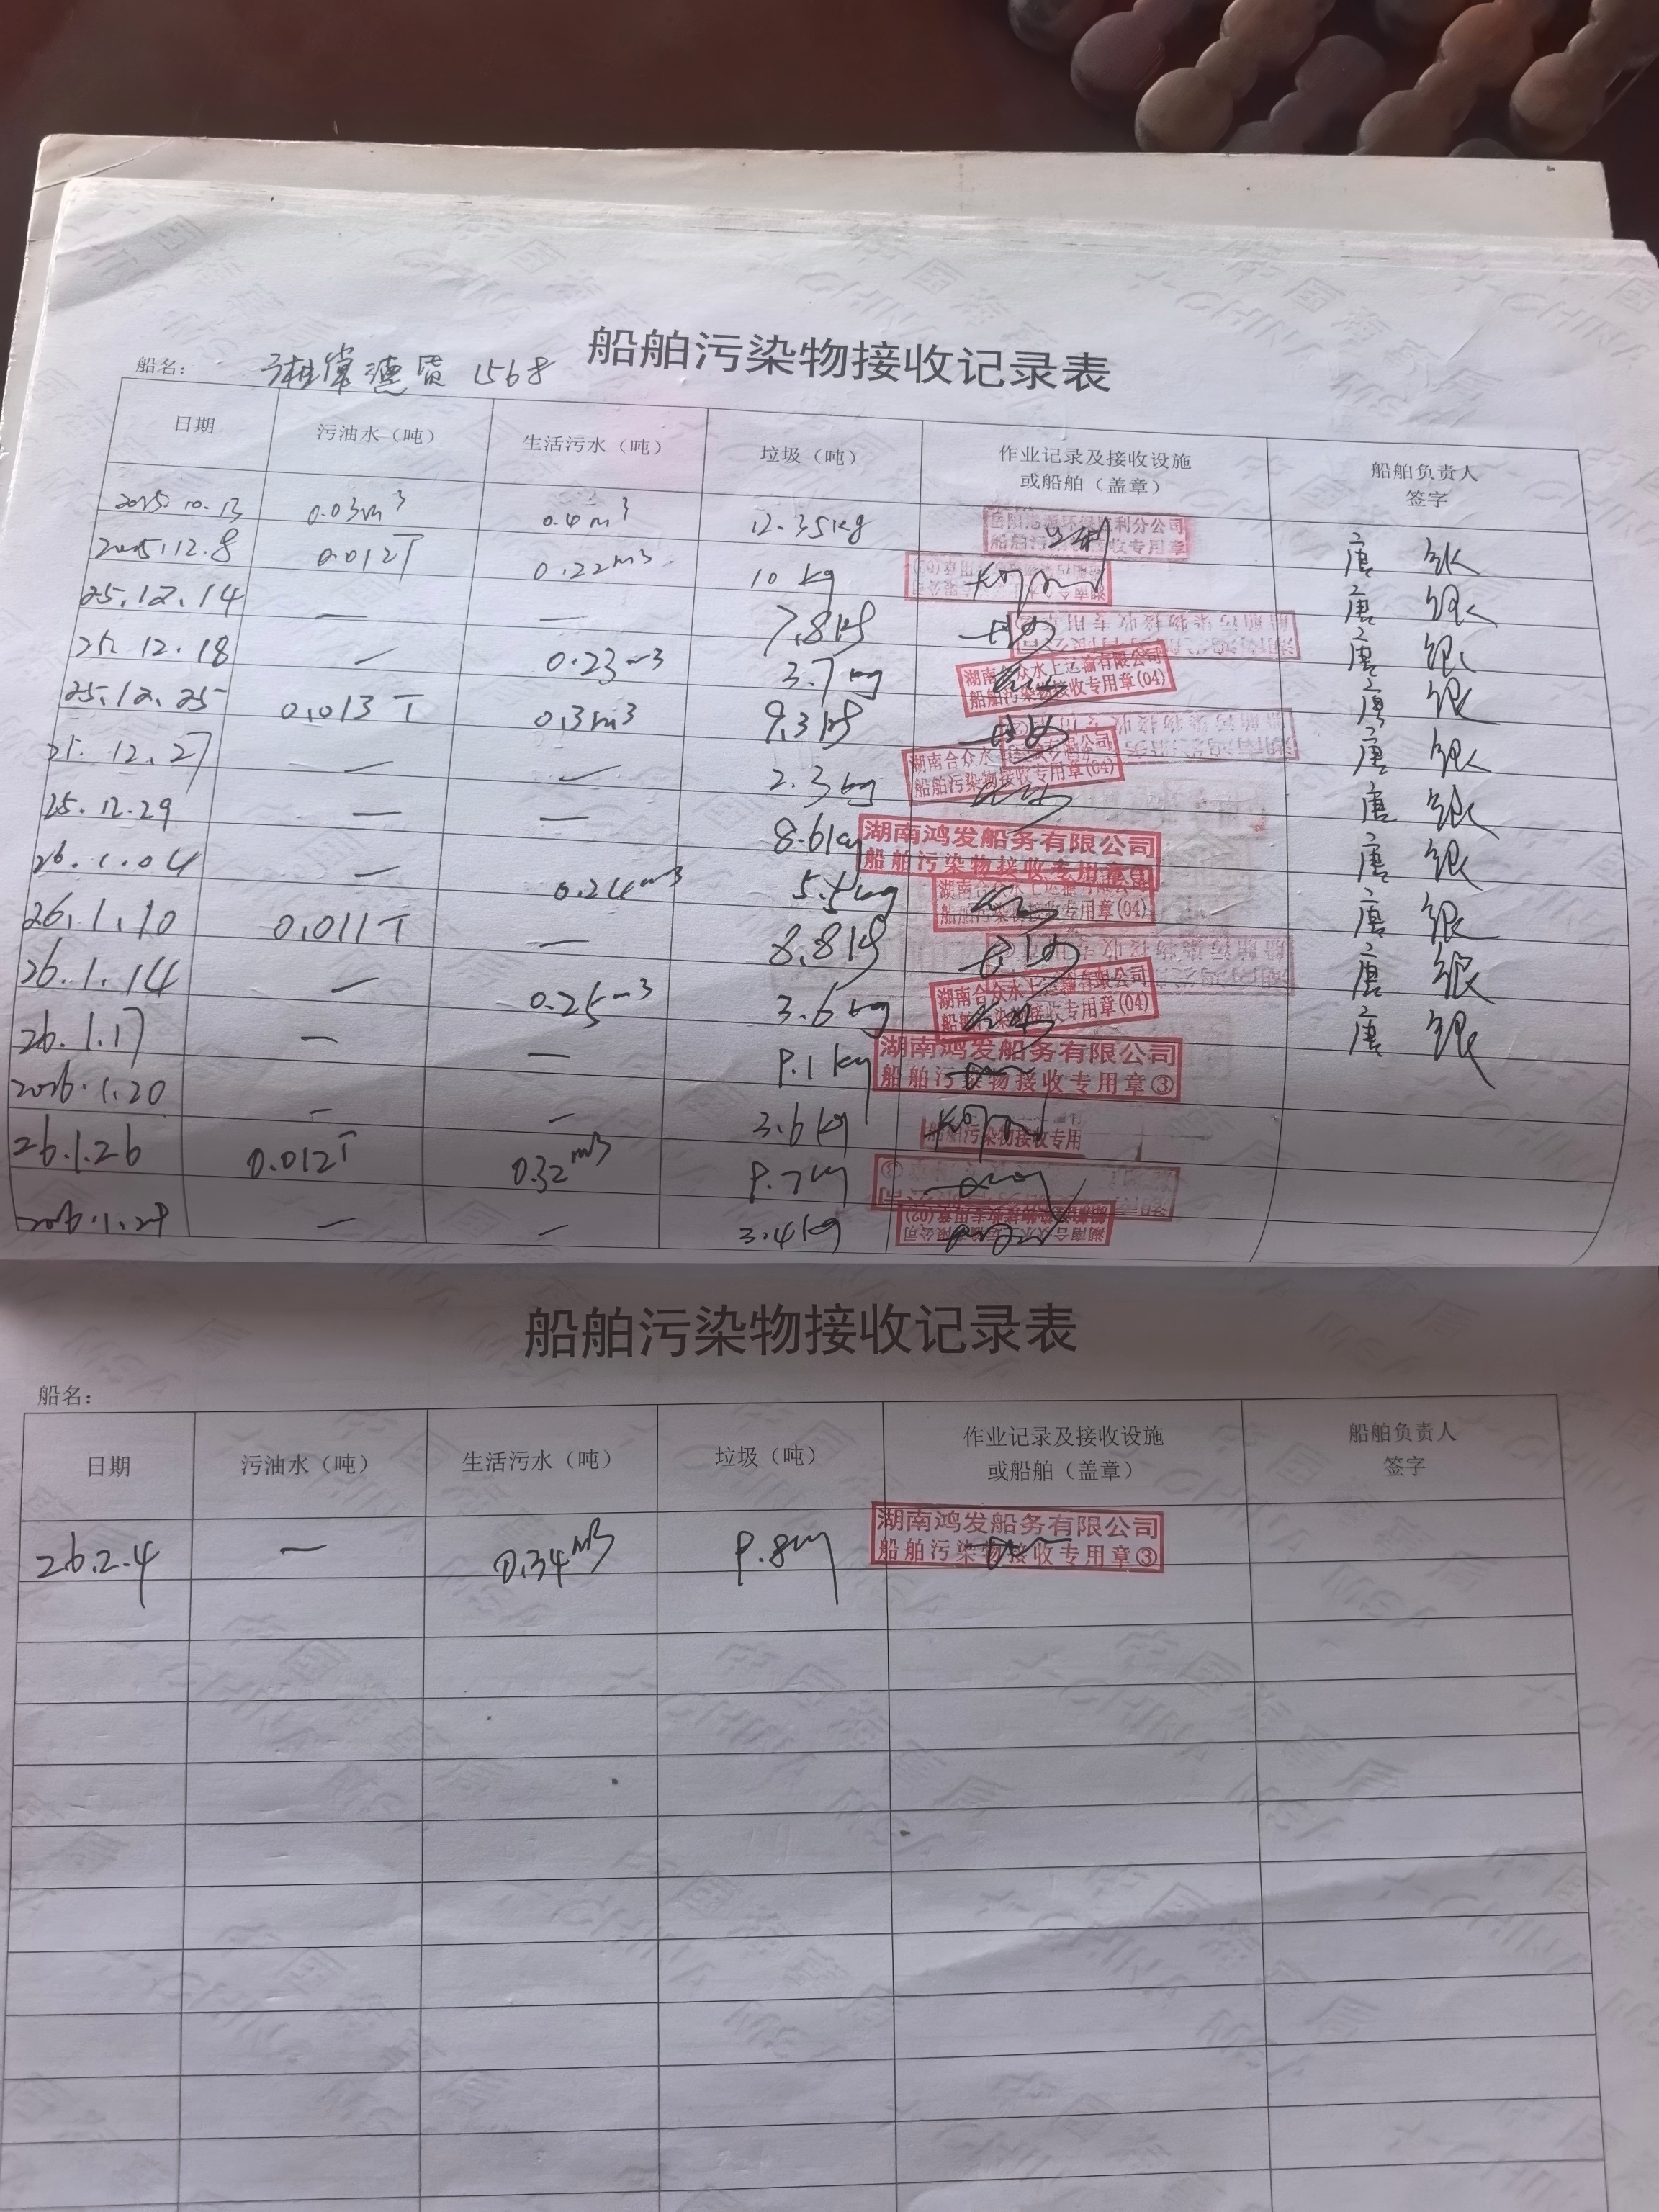 船舶污染物接收记录表
船名： 湘常德货1568
日期 污油水（吨） 生活污水（吨） 垃圾（吨） 作业记录及接收设施或船舶（盖章） 船舶负责人签字
2025.10.13 0.03m³ 0.4m³ 12.35kg 船舶污染物接收专用章 唐银
2025.12.8 0.012T 0.22m³ 10kg 唐银
25.12.14 — — 7.8kg 船舶污染物接收专用章 唐银
25.12.18 — 0.23m³ 3.7kg 湖南合众水上运输有限公司 船舶污染物接收专用章(04) 唐银
25.12.25 0.013T 0.3m³ 9.3kg 船舶污染物接收专用章 唐银
25.12.27 — — 2.3kg 湖南合众水上运输有限公司 船舶污染物接收专用章(04) 唐银
25.12.29 — — 8.6kg 湖南鸿发船务有限公司 船舶污染物接收专用章 唐银
26.1.04 — 0.24m³ 5.5kg 湖南合众水上运输有限公司 船舶污染物接收专用章(04) 唐银
26.1.10 0.011T — 8.8kg 船舶污染物接收专用章 唐银
26.1.14 — 0.25m³ 3.6kg 湖南合众水上运输有限公司 船舶污染物接收专用章(04) 唐银
26.1.17 — — 9.1kg 湖南鸿发船务有限公司 船舶污染物接收专用章③ 唐银
2026.1.20 — — 3.6kg 船舶污染物接收专用
26.1.26 0.012T 0.32m³ 9.7kg
2026.1.29 — — 3.4kg 湖南合众水上运输有限公司 船舶污染物接收专用章(02)
船舶污染物接收记录表
船名：
日期 污油水（吨） 生活污水（吨） 垃圾（吨） 作业记录及接收设施或船舶（盖章） 船舶负责人签字
26.2.4 — 0.34m³ 9.8kg 湖南鸿发船务有限公司 船舶污染物接收专用章③